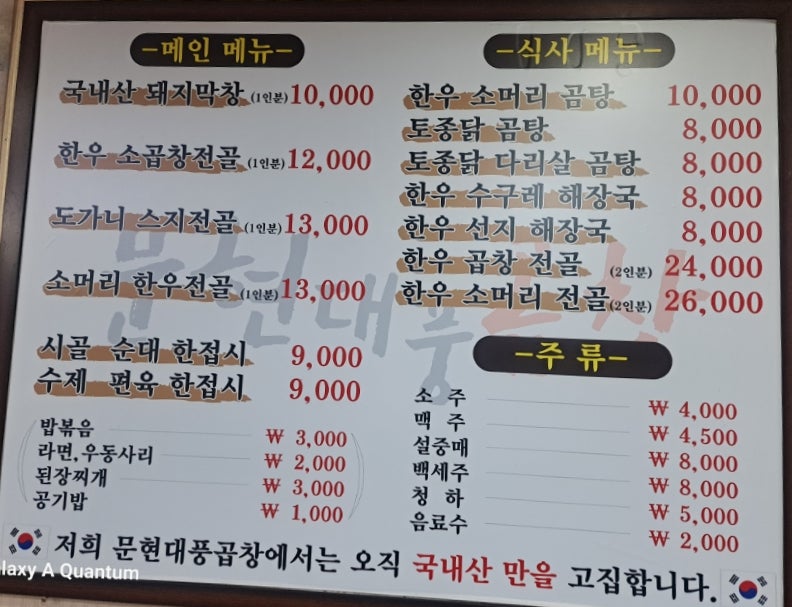 -메인 메뉴-
국내산 돼지막창 (1인분) 10,000
한우 소곱창전골 (1인분) 12,000
도가니 스지전골 (1인분) 13,000
소머리 한우전골 (1인분) 13,000
시골 순대 한접시 9,000
수제 편육 한접시 9,000
밥볶음 ₩ 3,000
라면,우동사리 ₩ 2,000
된장찌개 ₩ 3,000
공기밥 ₩ 1,000
-식사 메뉴-
한우 소머리 곰탕 10,000
토종닭 곰탕 8,000
토종닭 다리살 곰탕 8,000
한우 수구레 해장국 8,000
한우 선지 해장국 8,000
한우 곱창 전골 (2인분) 24,000
한우 소머리 전골 (2인분) 26,000
-주 류-
소 주 ₩ 4,000
맥 주 ₩ 4,500
설중매 ₩ 8,000
백세주 ₩ 8,000
청 하 ₩ 5,000
음료수 ₩ 2,000
문현대풍
저희 문현대풍곱창에서는 오직 국내산 만을 고집합니다.
laxy A Quantum